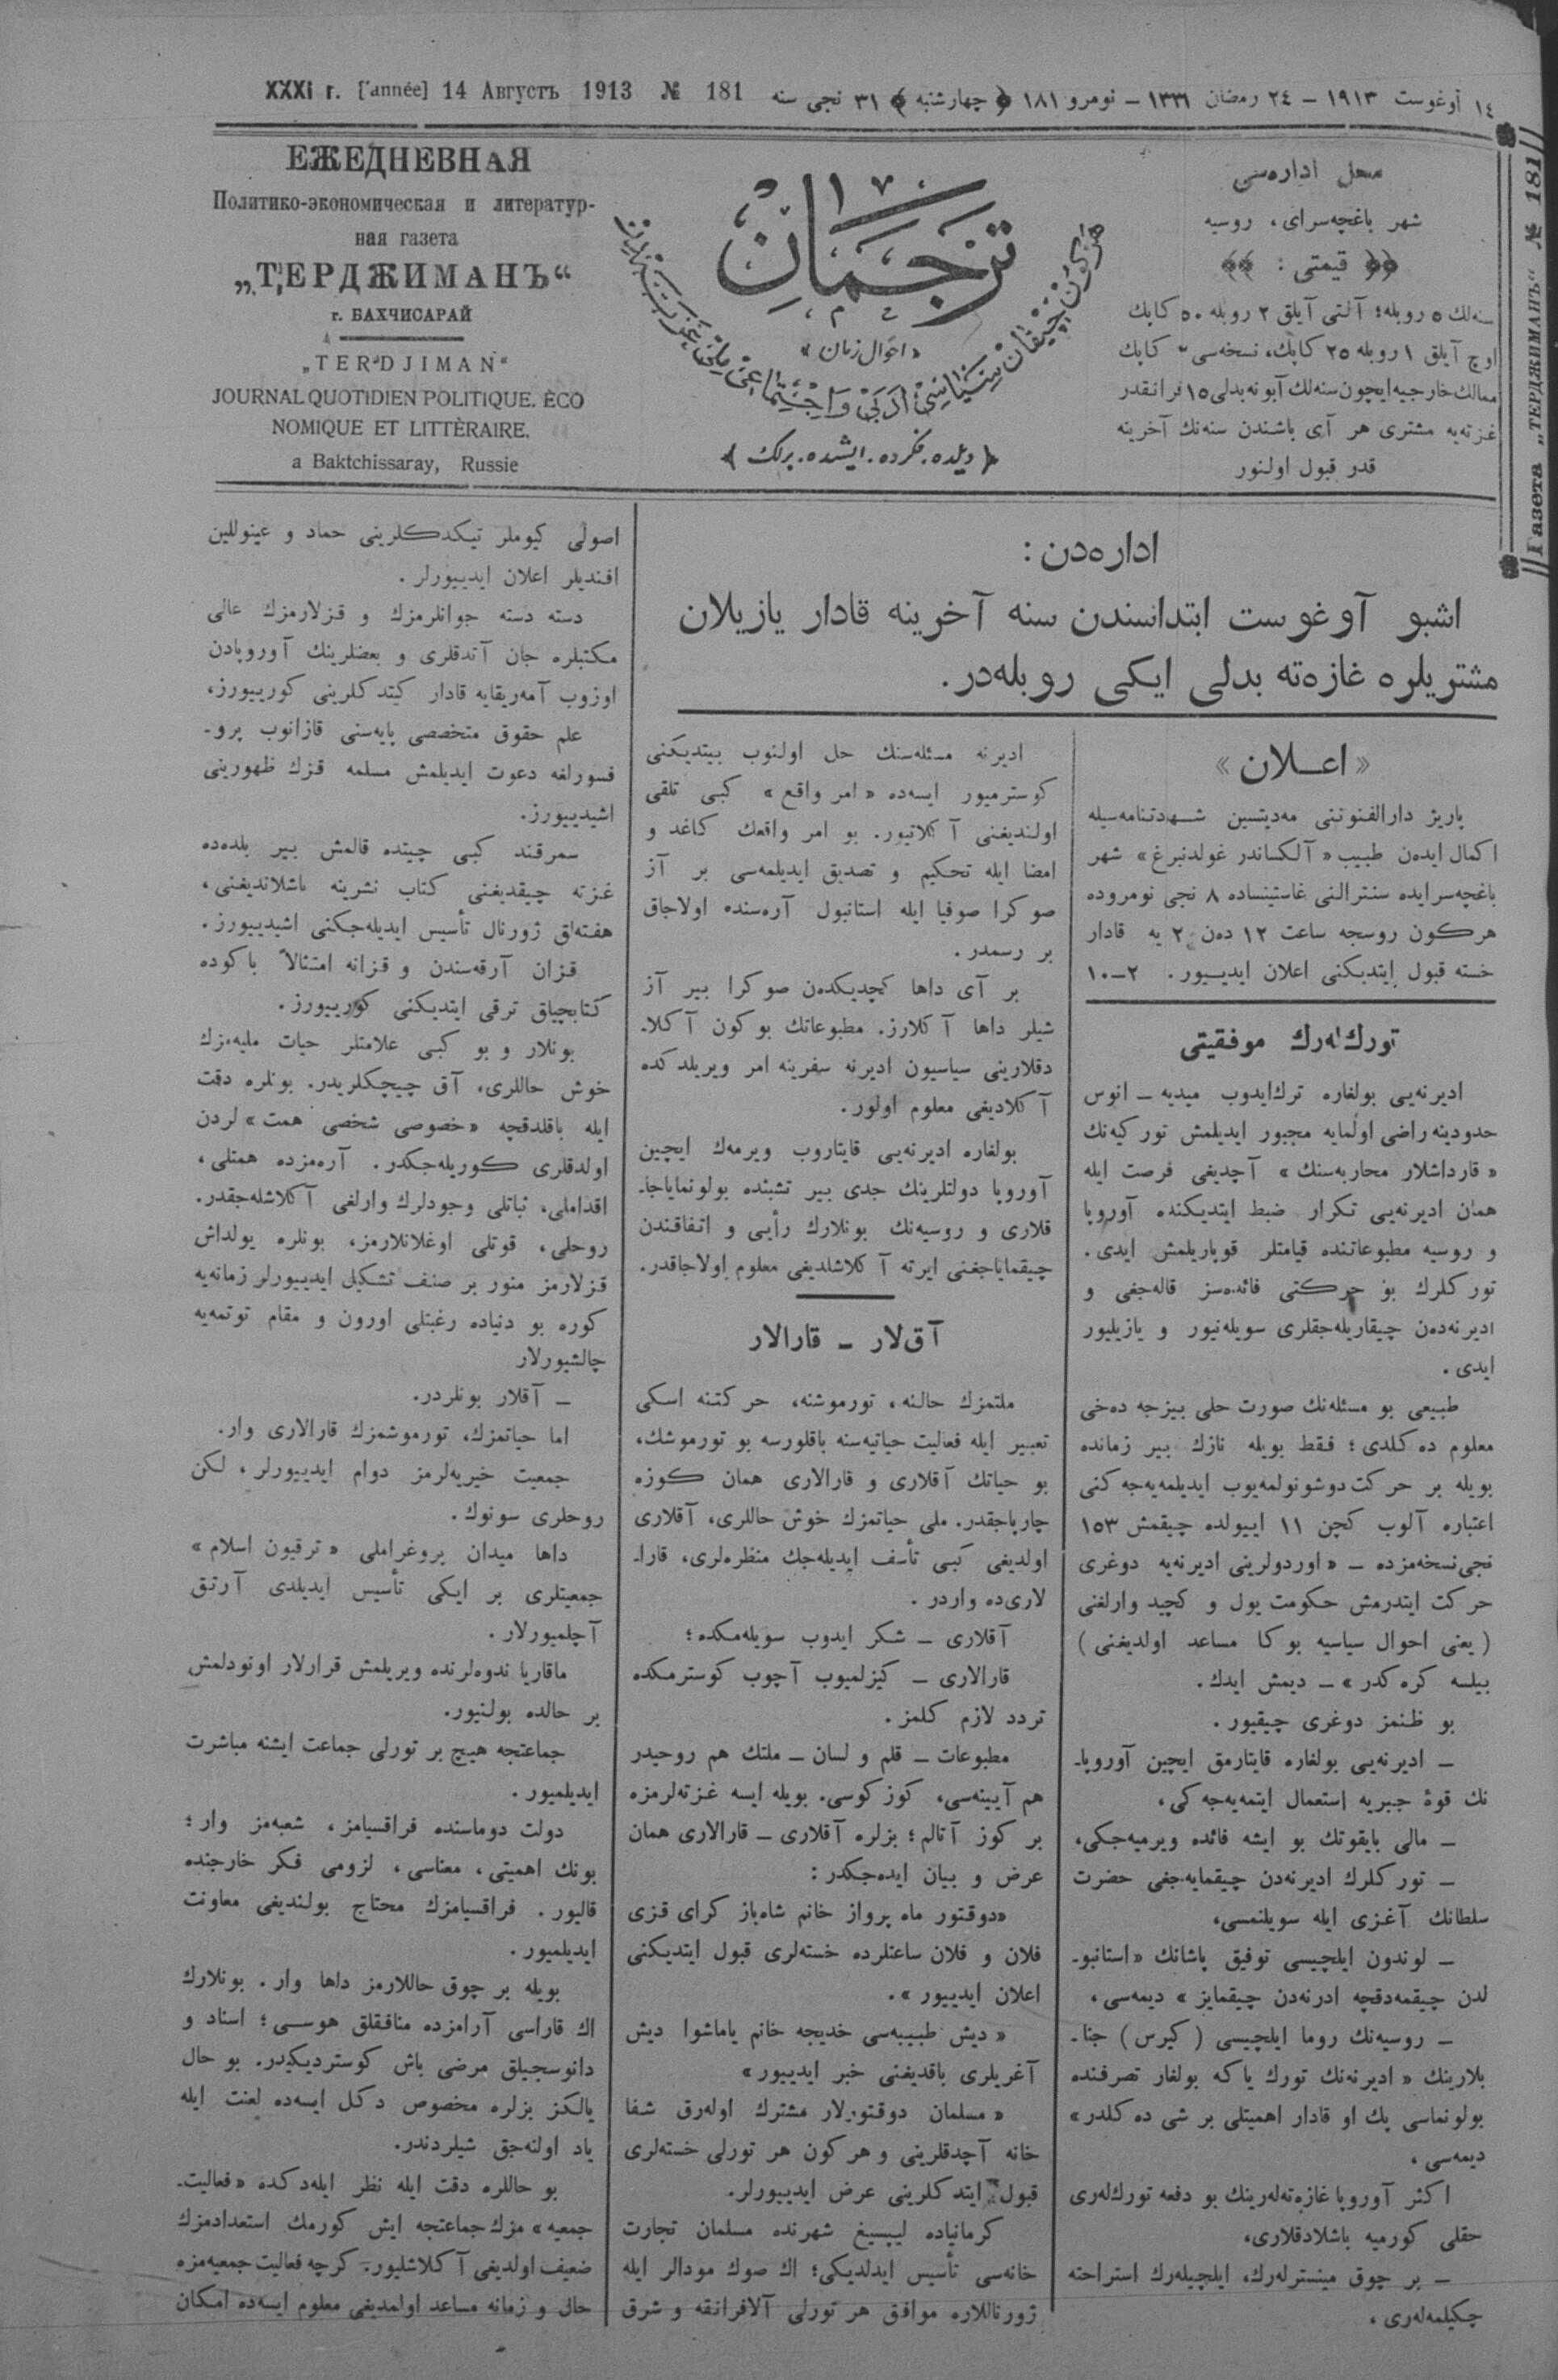 XXXI г. [l'année] 14 Августъ 1913 № 181
١٤ آوغوست ١٩١٣ – ٢٤ رمضان ١٣٣١ – نومرو ١٨١ ﴿ چهارشنبه ﴾ ٣١ نجی سنه
ЕЖЕДНЕВНАЯ
Политико-экономическая и литератур-
ная газета
„ТЕРДЖИМАНЪ“
г. БАХЧИСАРАЙ
„TERDJIMAN“
JOURNAL QUOTIDIEN POLITIQUE. ÈCO
NOMIQUE ET LITTÈRAIRE.
a Baktchissaray, Russie
ترجمان
«احوال زمان»
هرگون چیقان سیاسی ادبی و اجتماعی ملی غزته‌در
﴿ دیلده . فکرده . ایشده . برلك ﴾
محل اداره‌سی
شهر باغچه‌سرای، روسیه
﴿﴿ قیمتی : ﴾﴾
سنه‌لك ٥ روبله؛ آلتی آیلق ٢ روبله ٥٠ كاپك
اوچ آیلق ١ روبله ٢٥ كاپك، نسخه‌سی ٢ كاپك
ممالك خارجیه ایچون سنه‌لك آبونه بدلی ١٥ فرانقدر
غزته‌یه مشتری هر آی باشندن سنه‌نك آخرینه
قدر قبول اولنور
Газета „ТЕРДЖИМАНЪ“ № 181
اداره‌دن :
اشبو آوغوست ابتداسندن سنه آخرینه قادار یازیلان
مشتریلره غازه‌ته بدلی ایكی روبله‌در.
«اعـــلان»
پاریژ دارالفنوننی مه‌دیتسین شهدتنامه‌سیله
اكمال ایده‌ن طبیب «آلكساندر غولدنبرغ» شهر
باغچه‌سرایده سنترالنی غاستینساده ٨ نجی نومروده
هركون روسجه ساعت ١٢ ده‌ن ٢ یه قادار
خسته قبول ایتدیكنی اعلان ایدییور. ٢–١٠
تورك‌له‌رك موفقیتی
ادیرنه‌یی بولغاره ترك‌ایدوب میدیه – انوس
حدودینه راضی اولمایه مجبور ایدیلمش توركیه‌نك
«قارداشلار محاربه‌سنك» آچدیغی فرصت ایله
همان ادیرنه‌یی تكرار ضبط ایتدیكنده آوروپا
و روسیه مطبوعاتنده قیامتلر قوپاریلمش ایدی.
توركلرك بو حركتی فائده‌سز قاله‌جغی و
ادیرنه‌ده‌ن چیقاریله‌جقلری سویله‌نیور و یازیلیور
ایدی.
طبیعی بو مسئله‌نك صورت حلی بیزجه ده‌خی
معلوم ده‌كلدی؛ فقط بویله نازك بیر زمانده
بویله بر حركت دوشونولمه‌یوب ایدیلمه‌یه‌جه‌كنی
اعتباره آلوب كچن ١١ اییولده چیقمش ١٥٣
نجی نسخه‌مزده – «اوردولرینی ادیرنه‌یه دوغری
حركت ایتدرمش حكومت یول و كچید وارلغنی
(یعنی احوال سیاسیه بوكا مساعد اولدیغنی)
بیلسه كره‌كدر» – دیمش ایدك.
بو ظنمز دوغری چیقیور.
– ادیرنه‌یی بولغاره قایتارمق ایچین آوروپا-
نك قوهٔ جبریه استعمال ایتمه‌یه‌جه‌كی،
– مالی بایقوتك بو ایشه فائده ویرمیه‌جكی،
– توركلرك ادیرنه‌دن چیقمایه‌جغی حضرت
سلطانك آغزی ایله سویلنمسی،
– لوندون ایلچیسی توفیق پاشانك «استانبو-
لدن چیقمه‌دقچه ادرنه‌دن چیقمایز» دیمه‌سی،
– روسیه‌نك روما ایلچیسی (كیرس) جنا-
بلارینك «ادیرنه‌نك تورك یاكه بولغار تصرفنده
بولونماسی پك او قادار اهمیتلی بر شی ده‌كلدر»
دیمه‌سی،
اكثر آوروپا غازه‌ته‌له‌رینك بو دفعه تورك‌له‌ری
حقلی كورمیه باشلادقلاری،
– بر چوق مینسترله‌رك، ایلچیله‌رك استراحته
چكیلمه‌له‌ری،
ادیرنه مسئله‌سنك حل اولنوب بیتدیكنی
كوسترمیور ایسه‌ده «امر واقع» كبی تلقی
اولندیغنی آكلاتیور. بو امر واقعك كاغد و
امضا ایله تحكیم و تصدیق ایدیلمه‌سی بر آز
صوكرا صوفیا ایله استانبول آره‌سنده اولاجاق
بر رسمدر.
بر آی داها كچدیكده‌ن صوكرا بیر آز
شیلر داها آكلارز. مطبوعاتك بوكون آكلا-
دقلارینی سیاسیون ادیرنه سفرینه امر ویریلدكده
آكلادیغی معلوم اولور.
بولغاره ادیرنه‌یی قایتاروب ویرمه‌ك ایچین
آوروپا دولتلرینك جدی بیر تشبثده بولونمایاجا-
قلاری و روسیه‌نك بونلارك رأیی و اتفاقندن
چیقمایاجغنی ایرته آكلاشلدیغی معلوم اولاجاقدر.
آق‌لار – قارالار
ملتمزك حالنه، تورموشنه، حركتنه اسكی
تعبیر ایله فعالیت حیاتیه‌سنه باقلورسه بو تورموشك،
بو حیاتك آقلاری و قارالاری همان كوزه
چارپاجقدر. ملی حیاتمزك خوش حاللری، آقلاری
اولدیغی كبی تأسف ایدیله‌جك منظره‌لری، قارا-
لاری‌ده واردر.
آقلاری – شكر ایدوب سویله‌مكده؛
قارالاری – كیزلمیوب آچوب كوسترمكده
تردد لازم كلمز.
مطبوعات – قلم و لسان – ملتك هم روحیدر
هم آیینه‌سی، كوزكوسی. بویله ایسه غزته‌لرمزه
بر كوز آتالم؛ بزلره آقلاری – قارالاری همان
عرض و بیان ایده‌جكدر:
«دوقتور ماه پرواز خانم شاه‌باز كرای قزی
فلان و فلان ساعتلرده خسته‌لری قبول ایتدیكنی
اعلان ایدییور».
«دیش طبیبه‌سی خدیجه خانم یاماشوا دیش
آغریلری باقدیغنی خبر ایدییور»
«مسلمان دوقتورلار مشترك اوله‌رق شفا
خانه آچدقلرینی و هركون هر تورلی خسته‌لری
قبول ایتدكلرینی عرض ایدییورلر.
كرمانیاده لیپسیغ شهرنده مسلمان تجارت
خانه‌سی تأسیس ایدلدیكی؛ اك صوك مودالر ایله
ژورناللاره موافق هر تورلی آلافرانقه و شرق
اصولی كیوملر تیكدكلرینی حماد و عینوللین
افندیلر اعلان ایدییورلر.
دسته دسته جوانلرمزك و قزلارمزك عالی
مكتبلره جان آتدقلری و بعضلرینك آوروپادن
اوزوب آمه‌ریقایه قادار كیتدكلرینی كورییورز،
علم حقوق متخصصی پایه‌سنی قازانوب پرو-
فسورلغه دعوت ایدیلمش مسلمه قزك ظهورینی
اشیدییورز.
سمرقند كبی چیتده قالمش بیر بلده‌ده
غزته چیقدیغنی كتاب نشرینه باشلاندیغنی،
هفته‌لق ژورنال تأسیس ایدیله‌جكنی اشیدییورز.
قزان آرقه‌سندن و قزانه امتثالاً باكوده
كتابچیلق ترقی ایتدیكنی كورییورز.
بونلار و بو كبی علامتلر حیات ملیه‌مزك
خوش حاللری، آق چیچكلریدر. بونلره دقت
ایله باقلدقچه «خصوصی شخصی همت» لردن
اولدقلری كوریله‌جكدر. آره‌مزده همتلی،
اقداملی، ثباتلی وجودلرك وارلغی آكلاشله‌جقدر.
روحلی، قوتلی اوغلانلارمز، بونلره یولداش
قزلارمز منور بر صنف تشكیل ایدییورلر زمانه‌یه
كوره بو دنیاده رغبتلی اورون و مقام توتمه‌یه
چالشیورلار
– آقلار بونلردر.
اما حیاتمزك، تورموشمزك قارالاری وار.
جمعیت خیریه‌لرمز دوام ایدییورلر، لكن
روحلری سونوك.
داها میدان پروغراملی «ترقیون اسلام»
جمعیتلری بر ایكی تأسیس ایدیلدی آرتق
آچلمیورلار.
ماقاریا ندوه‌لرنده ویریلمش قرارلار اونودلمش
بر حالده بولنیور.
جماعتجه هیچ بر تورلی جماعت ایشنه مباشرت
ایدیلمیور.
دولت دوماسنده فراقسیامز، شعبه‌مز وار؛
بونك اهمیتی، معناسی، لزومی فكر خارجنده
قالیور. فراقسیامزك محتاج بولندیغی معاونت
ایدیلمیور.
بویله بر چوق حاللارمز داها وار. بونلارك
اك قاراسی آرامزده منافقلق هوسی؛ اسناد و
دانوسجیلق مرضی باش كوستردیكیدر. بو حال
یالكز بزلره مخصوص دكل ایسه‌ده لعنت ایله
یاد اولنه‌جق شیلردندر.
بو حاللره دقت ایله نظر ایله‌دكده «فعالیت-
جمعیه» مزك جماعتجه ایش كورمك استعدادمزك
ضعیف اولدیغی آكلاشلیور. كرچه فعالیت جمعیه‌مزه
حال و زمانه مساعد اولمدیغی معلوم ایسه‌ده امكان